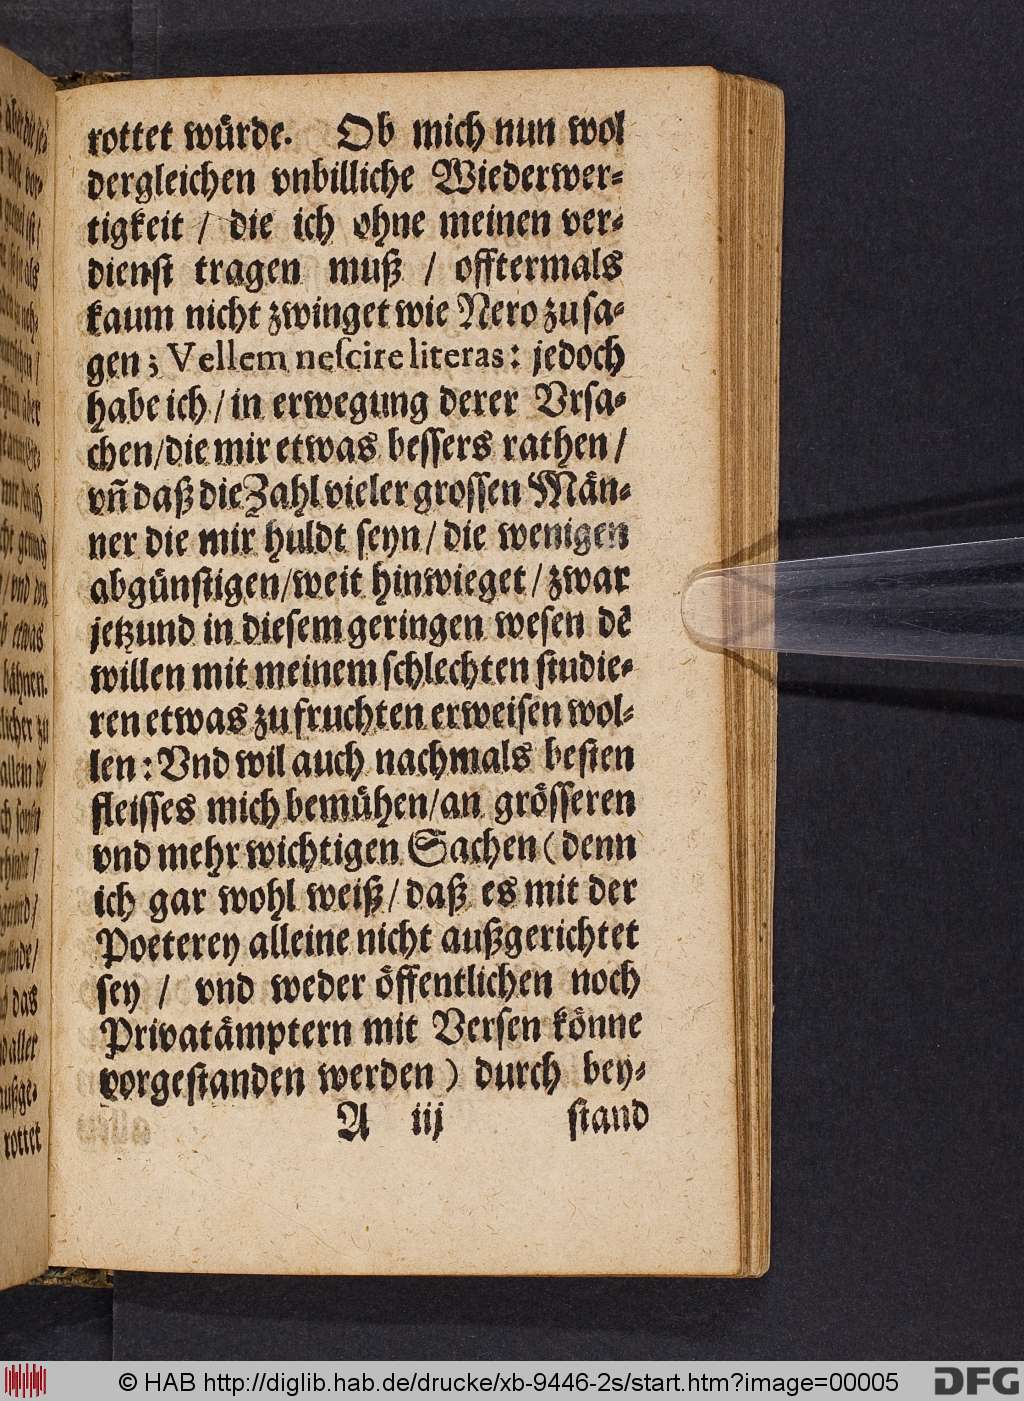 rottet würde. Ob mich nun wol
dergleichen vnbilliche Wiederwer-
tigkeit / die ich ohne meinen ver-
dienst tragen muß / offtermals
kaum nicht zwinget wie Nero zu sa-
gen; Vellem neſcire literas: jedoch
habe ich / in erwegung derer Vrsa-
chen / die mir etwas bessers rathen /
vñ daß die Zahl vieler grossen Män-
ner die mir huldt seyn / die wenigen
abgünstigen / weit hinwieget / zwar
jetzund in diesem geringen wesen dẽ
willen mit meinem schlechten studie-
ren etwas zu fruchten erweisen wol-
len: Vnd wil auch nachmals besten
fleisses mich bemühen / an grösseren
vnd mehr wichtigen Sachen (denn
ich gar wohl weiß / daß es mit der
Poeterey alleine nicht außgerichtet
sey / vnd weder öffentlichen noch
Privatämptern mit Versen könne
vorgestanden werden) durch bey-
A iij stand
rottet
© HAB http://diglib.hab.de/drucke/xb-9446-2s/start.htm?image=00005
DFG